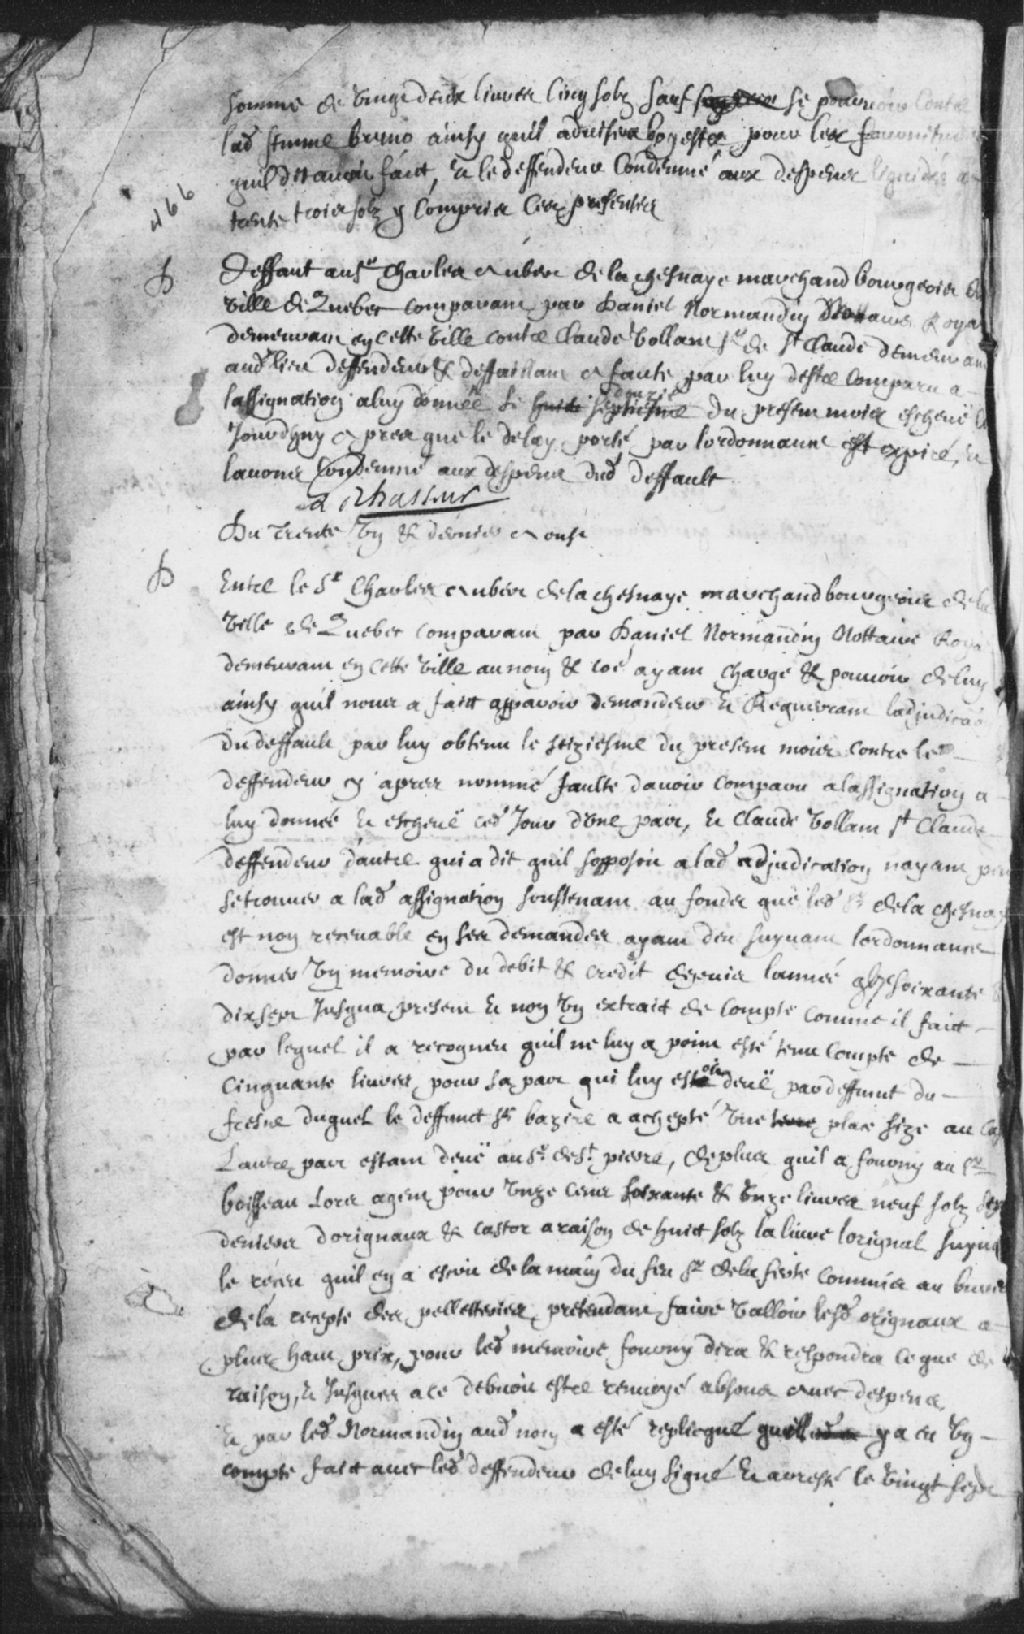 somme de vingt deux livres cinq solz sauf se pourvoir contre
lad femme bruno ainsy quil advisera bon estre pour les
quil dit avoir faict, et le deffendeur condemné aux despens liquidés a
trente trois solz y compris ces presentes
466
D
Deffaut au sr Charles Aubert de la chesnaye marchand bourgeois de
ville de Quebec comparant par Daniel Normandin Nottaire Royal
demeurant en cette ville contre Claude Vollant sr de st Claude demeurant
aud lieu deffendeur & deffaillant a faute par luy destre comparu a
lassignation a luy donnée le septiesme du present mois escheüe
Jourdhuy apres que le delay porté par lordonnance est expiré, et
lavons condemné aux despens dud deffault
Du trente un & dernier aoust
D
Entre le sr Charles Aubert de la chesnaye marchand bourgeois de la
ville de Quebec comparant par Daniel Normandin Nottaire Royal
demeurant en cette ville au nom & coē ayant charge & pouvoir de luy
ainsy quil nous a faict apparoir demandeur et Requerant ladjudicaōn
du deffault par luy obtenu le seiziesme du present mois contre le
deffendeur cy apres nommé faulte davoir comparu a lassignation a
luy donnée et escheüe ced Jour dune part, et Claude Vollant st Claude
deffendeur dautre qui a dit quil sopposoit a lad adjudication nayant peu
se trouver a lad assignation soustenant au fonder que led sr de la chesnaye
est non recevable en ses demandes ayant deu suyvant lordonnance
donner un memoire du debit & credit depuis lannée gbjc soixante
dix sept Jusqua present et non un extrait de compte comme il faict
par lequel il a recogneu quil ne luy a point esté tenu compte de
cinquante livres pour sa part qui luy est deüe par deffunct du
fresne duquel le deffunct sr bazire a achepté une terre place size au
Lautre part estant deüe au sr de st pierre, de plus quil a fourny au sr
boisseau Lors agent pour unze cens soixante & unze livres neuf solz
deniers dorignaux & castor a raison de huict solz la livre lorignal suyvant
le receu quil en a escrit de la main du feu sr de la ferté commis au bureau
de la recepte des pelletteries pretendant faire valloir lesd orignaux a
plus haut prix, pour led memoire fourny dire & respondre ce que de
raison, et Jusques a ce debvoir estre renvoyé absous avec despens
Et par led Normandin aud nom a esté replicqué quil y a eu un
compte faict avec led deffendeur de luy signé et arresté le vingt sept